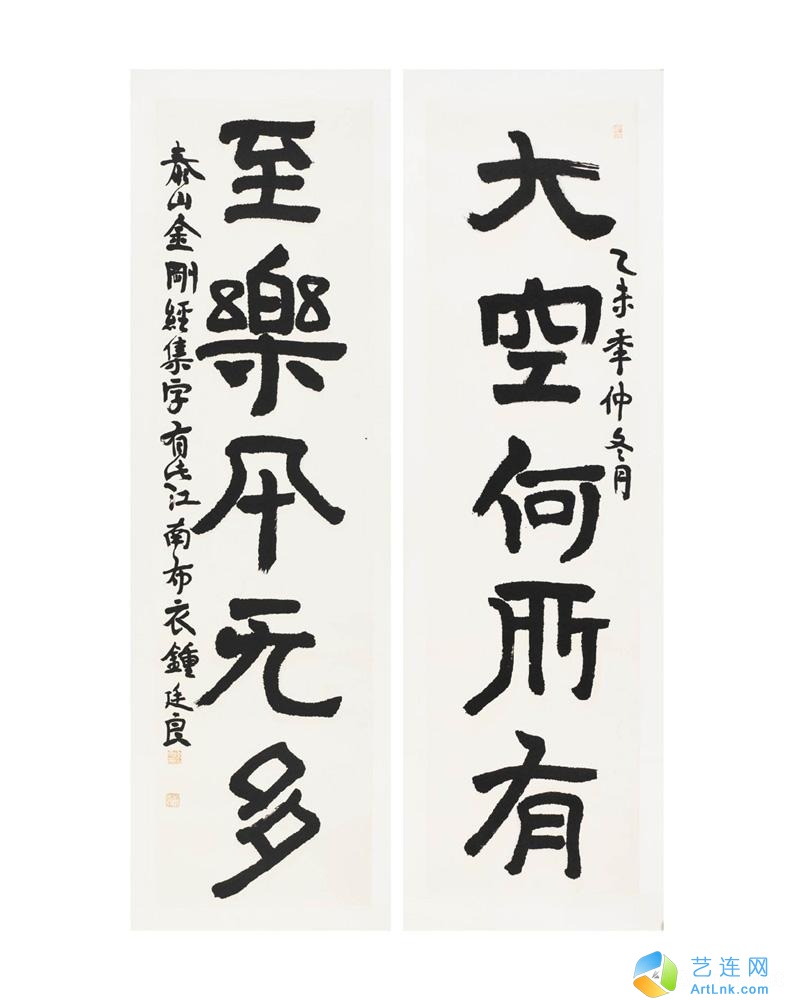 大空何所有
乙未秊仲冬月
至樂本无多
泰山金剛經集字有此江南布衣鍾廷良
艺连网
ArtLnk.com